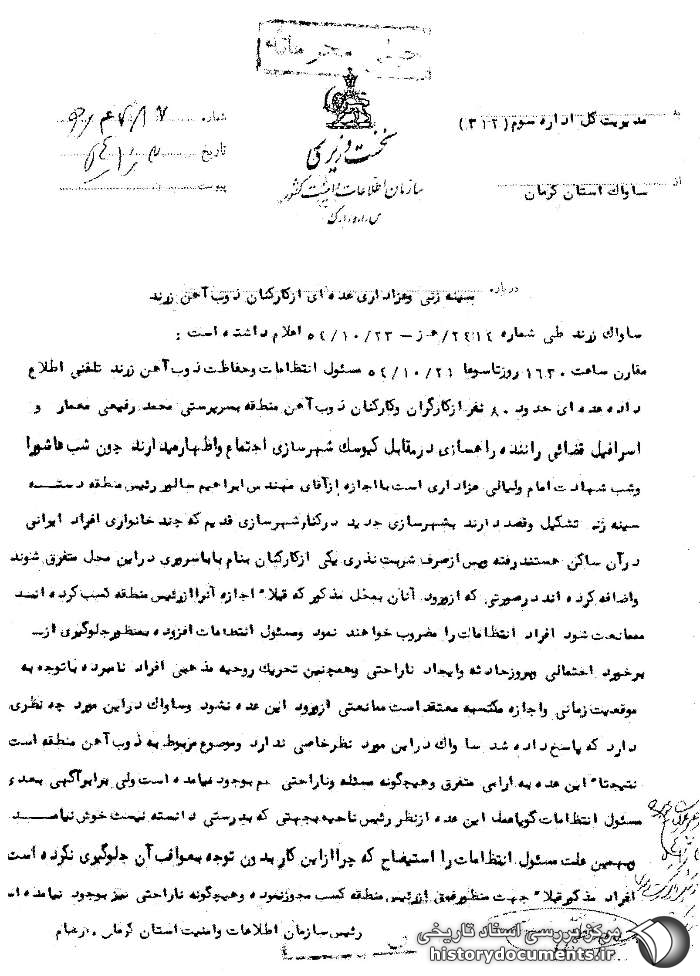 خیلی محرمانه
نخست وزیری
سازمان اطلاعات و امنیت کشور
س.ا.و.ا.ک
به مدیریت کل اداره سوم (۳۱۲)
از ساواك استان کرمان
شماره
تاریخ
پیوست
درباره سینه زنی وعزاداری عده ای ازکارکنان ذوب آهن زرند
ساواك زرند طی شماره ۲۴۱۴/ه‍ ز - ۵۴/۱۰/۲۳ اعلام داشته است :
مقارن ساعت ۱۶۳۰ روزتاسوعا ۵۴/۱۰/۲۱ مسئول انتظامات وحفاظت ذوب آهن زرند تلفنی اطلاع
داده عده ای حدود ۸۰ نفر ازکارگران وکارکنان ذوب آهن منطقه بسرپرستی محمد رفیعی معمار و
اسرافیل قضائی راننده راهسازی درمقابل کیوسك شهرسازی اجتماع واظهارمیدارند چون شب عاشورا
وشب شهادت امام ولیالی عزاداری است بااجازه ازآقای مهندس ابراهیم سالور رئیس منطقه دسته
سینه زنی تشکیل وقصد دارند بشهرسازی جدید درکنارشهرسازی قدیم که چند خانواری افراد ایرانی
درآن ساکن هستند رفته وپس ازصرف شربت نذری یکی ازکارکنان بنام باباسروری دراین محل متفرق شوند
واضافه کرده اند درصورتی که ازورود آنان بمحل مذکور که قبلا" اجازه آنراازرئیس منطقه کسب کرده اند
ممانعت شود افراد انتظامات را مضروب خواهند نمود ومسئول انتظامات افزوده بمنظورجلوگیری از
برخورد احتمالی وبروزحادثه وایجاد ناراحتی وهمچنین تحریك روحیه مذهبی افراد نامبرده باتوجه به
موقعیت زمانی واجازه مکتسبه معتقد است ممانعتی ازورود این عده نشود وساواك دراین مورد چه نظری
دارد که پاسخ داده شد ساواك دراین مورد نظرخاصی ندارد وموضوع مربوط به ذوب آهن منطقه است
نتیجتا" این عده به آرامی متفرق وهیچگونه مسئله وناراحتی هم بوجود نیامده است ولی برابرآگهی بعدی
مسئول انتظامات گویاعمل این عده ازنظر رئیس ناحیه بجهتی که بدرستی دانسته نیست خوش نیامده
وبهمین علت مسئول انتظامات را استیضاح که چراازاین کار بدون توجه بعواقب آن جلوگیری نکرده است
افراد مذکورقبلا" جهت منظورفوق ازرئیس منطقه کسب مجوزنموده وهیچگونه ناراحتی نیز بوجود نیامده است
رئیس سازمان اطلاعات وامنیت استان کرمان
مرکز بررسی اسناد تاریخی
historydocuments.ir